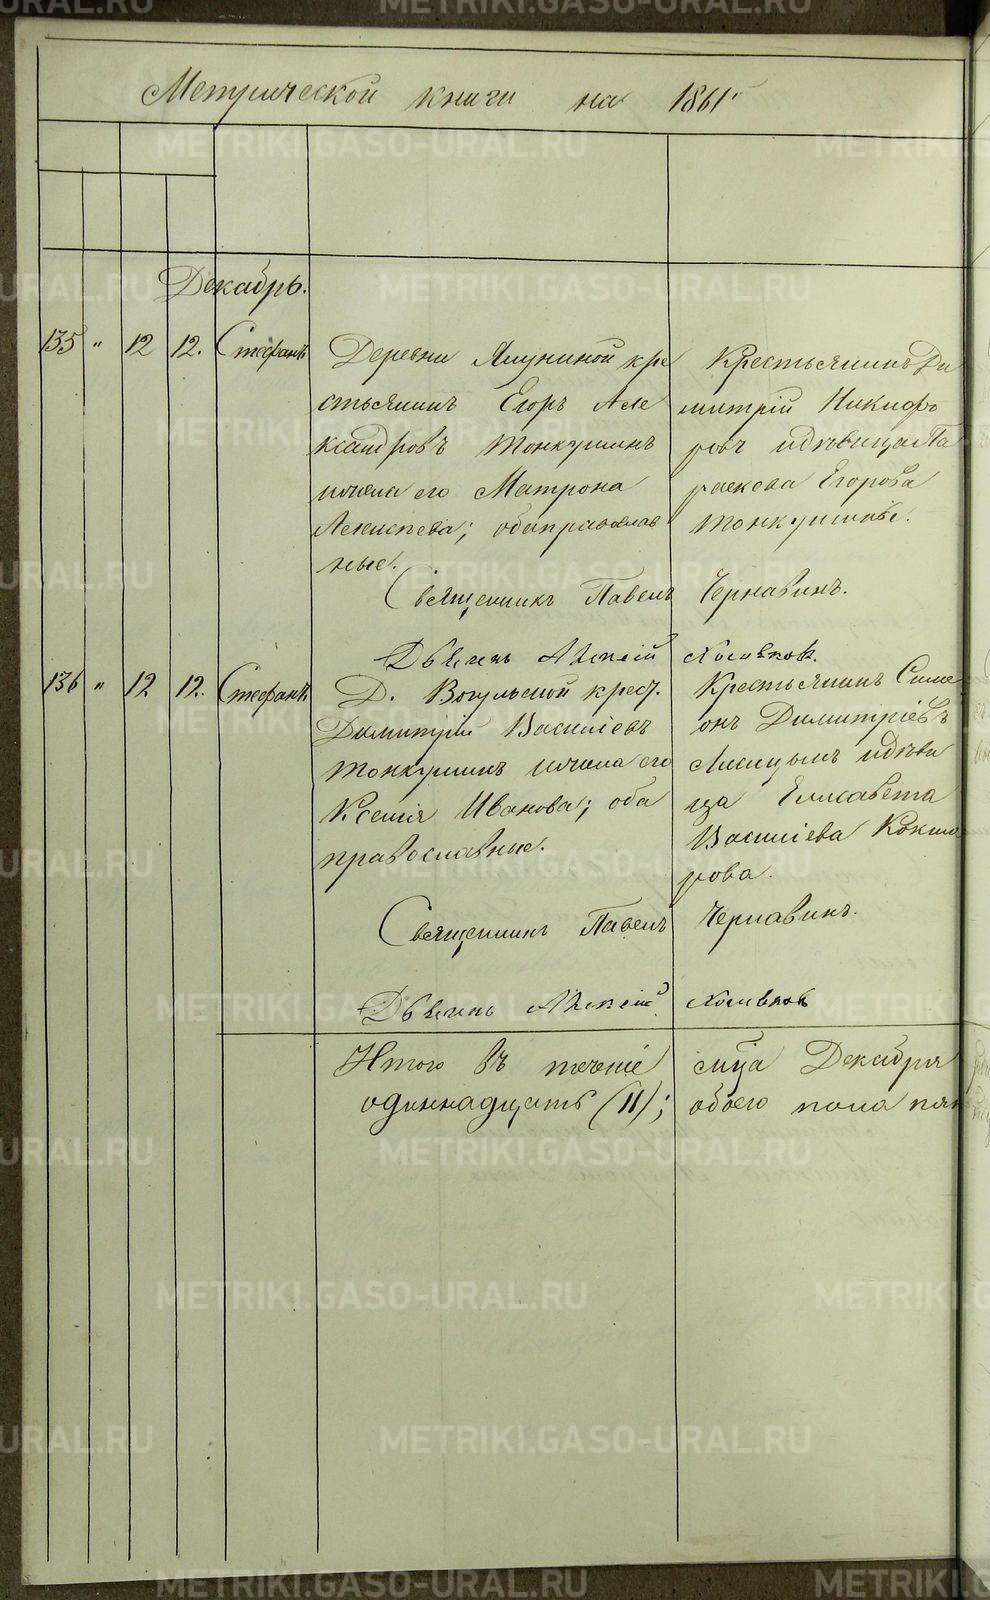 Метрической книги на 1861 г.
Декабрь.
135 " 12 12. Стефанъ
Деревни Ялуниной кре
стьянинъ Егоръ Але
ксандровъ Тонкушинъ
и жена его Матрона
обаправослав
ные.
Крестьянинъ Ди
митрій Никифо
ровъ и дѣвица Па
раскова Егорова
Тонкушины.
Священникъ Павелъ Чернавинъ.
Дьячекъ Алексій
136 " 12 12. Стефанъ
Д. Вогульской крест.
Димитрій Василіевъ
Тонкушинъ и жена его
Ксенія Иванова; оба
православные.
Крестьянинъ Симе
онъ Димитріевъ
и дѣви
ца Елисавета
Василіева Кокша
рова.
Священникъ Павелъ Чернавинъ.
Дьячекъ Алексій
Итого въ теченіе мсца Декабря
одиннадцать (11); обоего пола
METRIKI.GASO-URAL.RU